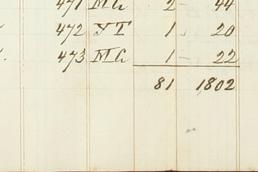 471 MG 2 44
472 YT 2 20
473 MG 1 22
81 1802